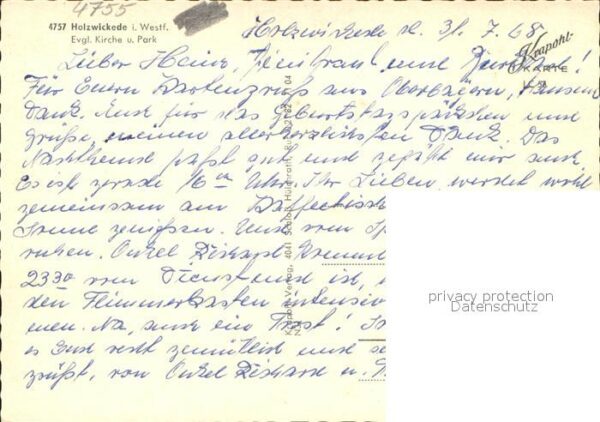 4755
4757 Holzwickede i. Westf.
Evgl. Kirche u. Park
Holzwickede d. 31. 7. 68
Krapohl-
KARTE
Lieber Heinz, und
Für Euern Kartengruß aus Oberbayern, tausend
Dank. Auch für das Geburtstagspäckchen und
Grüße, meinen allerherzlichsten Dank. Das
Nachthemd paßt gut und gefällt mir auch
Es ist gerade 16 Uhr. Ihr Lieben werdet wohl
gemeinsam am Kaffeetisch
Sonne genießen. Und vom
ruhen. Onkel Richard kommt
2330 vom Dienst und ist,
den Flimmerkasten intensiv
nen. Na, auch ein Trost!
es Euch recht gemütlich und
grüßt, von Onkel Richard u.
Krapohl-Verlag, 4041 Schloß Hülchrath,
privacy protection
Datenschutz